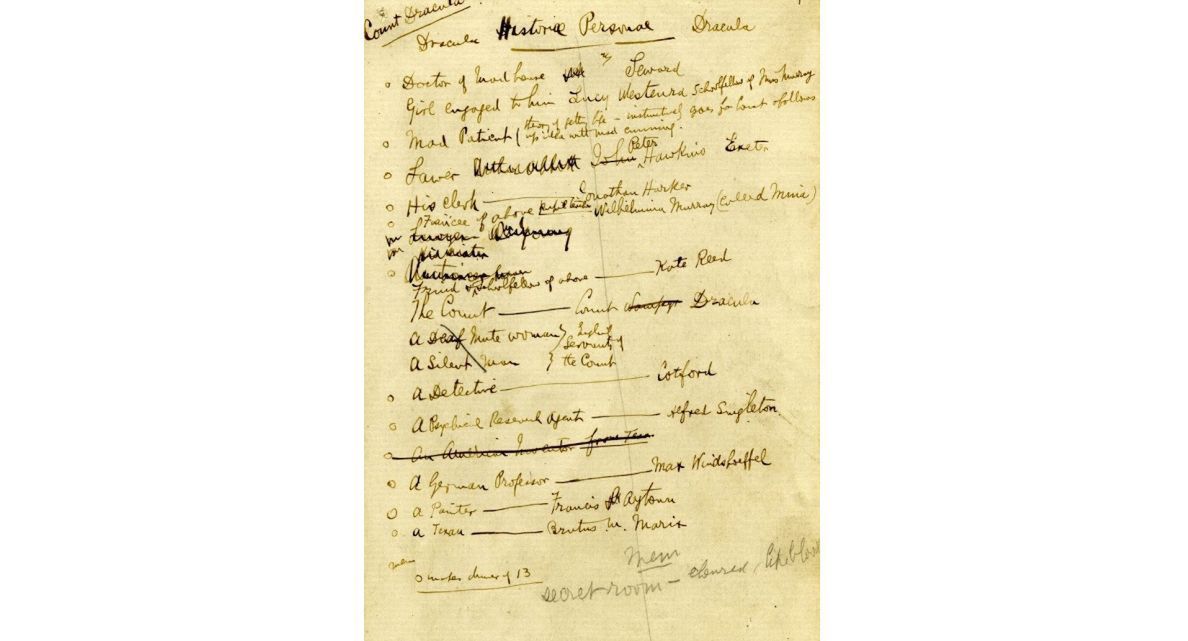 Count Dracula
Dracula Historiæ Personae Dracula
Doctor of Mad house Seward
Girl engaged to him Lucy Westenra Schoolfellow of Miss Murray
Mad Patient (theory of getting life - instinctively goes for Count & follows
up idea with mad cunning.
Lawer John Peter Hawkins Exeter
His clerk — Jonathan Harker
Fiancée of above pupil teacher Wilhelmina Murray (called Mina)
Lawyer
Friend & Schoolfellow of above — Kate Reed
The Count — Count Wampyr Dracula
A Deaf Mute woman } English
Servants of
A Silent Man } the Count
A Detective — Cotford
A Psychical Research Agent — Alfred Singleton
An American Inventor from Texas
A German Professor — Max Windshoeffel
A Painter — Francis Aytown
A Texan — Brutus M. Marix
mem
makes dinner of 13
Mem
secret room - coloured like blood